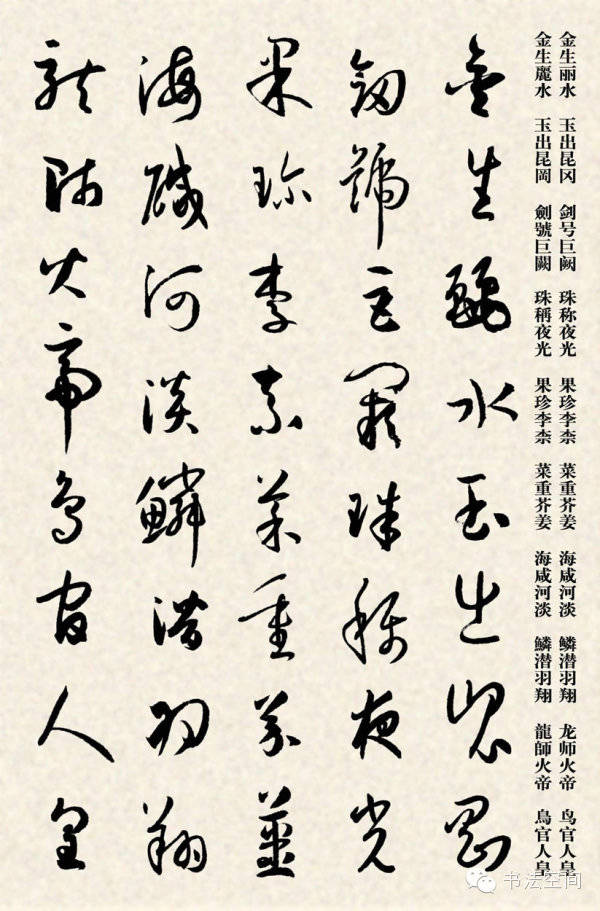 金生丽水 玉出昆冈 剑号巨阙 珠称夜光 果珍李柰 菜重芥姜 海咸河淡 鳞潜羽翔 龙师火帝 鸟官人皇
金生麗水 玉出昆岡 劍號巨闕 珠稱夜光 果珍李柰 菜重芥姜 海咸河淡 鱗潛羽翔 龍師火帝 鳥官人皇
金生麗水玉出崑岡
劍號巨闕珠稱夜光
果珍李柰菜重芥薑
海鹹河淡鱗潛羽翔
龍師火帝鳥官人皇
书法空间